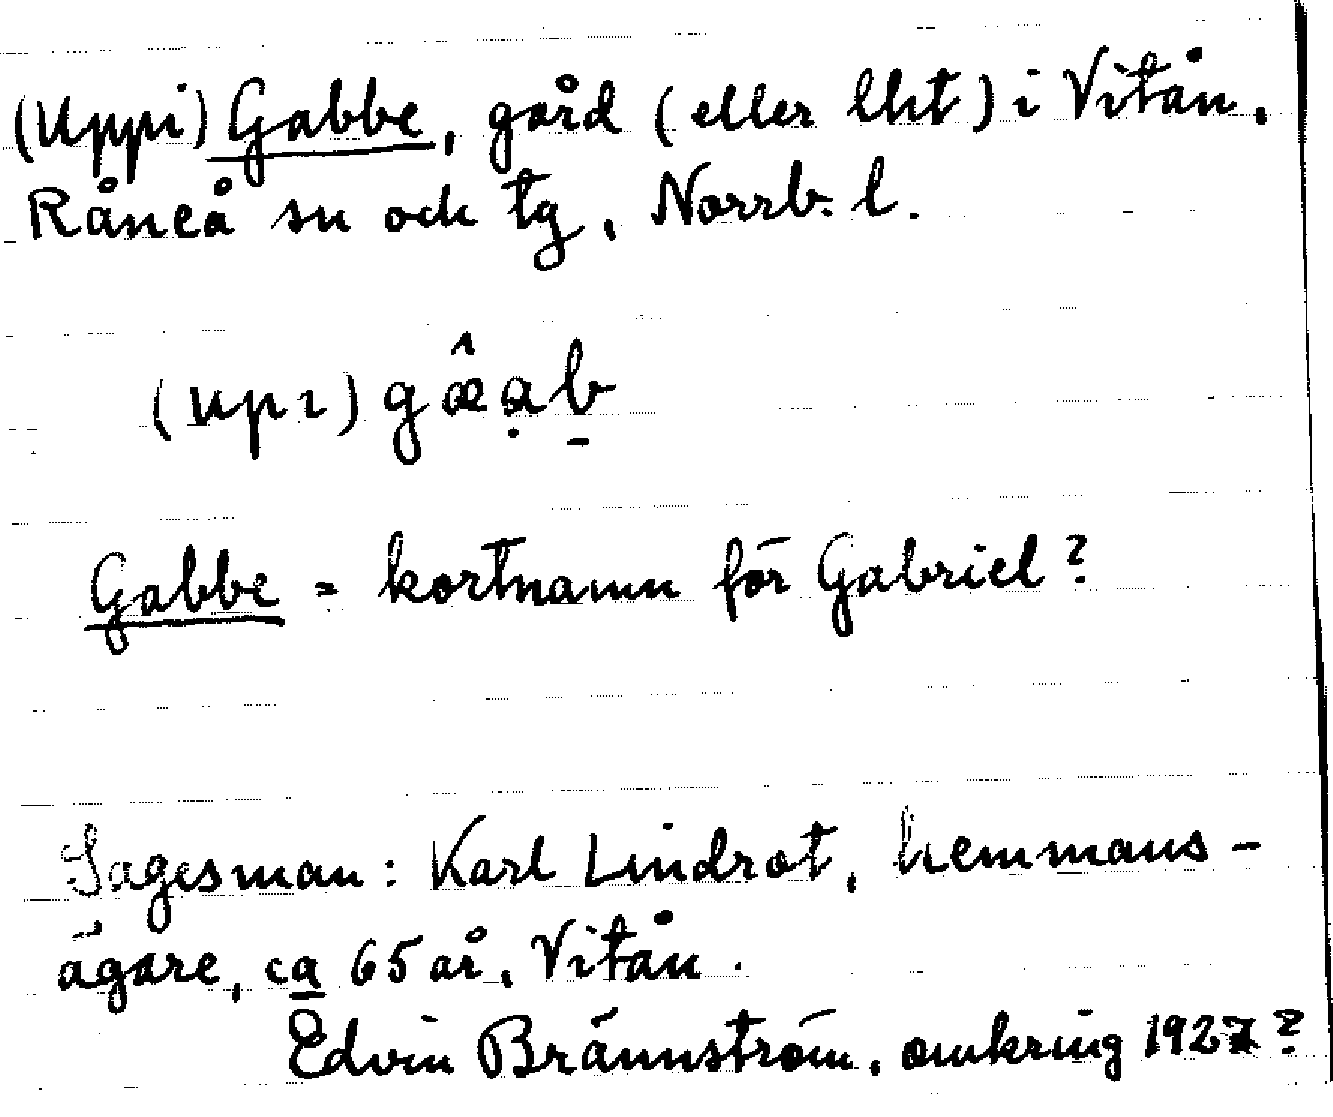 (Uppi) Gabbe, gård (eller lht) i Vitån,
Råneå sn och tg, Norrb. l.
(upı) gæ̂ạb̠
Gabbe = kortnamn för Gabriel?
Sagesman: Karl Lindrot, hemmans-
ägare, ca 65 år, Vitån.
Edvin Brännström, omkring 1927?